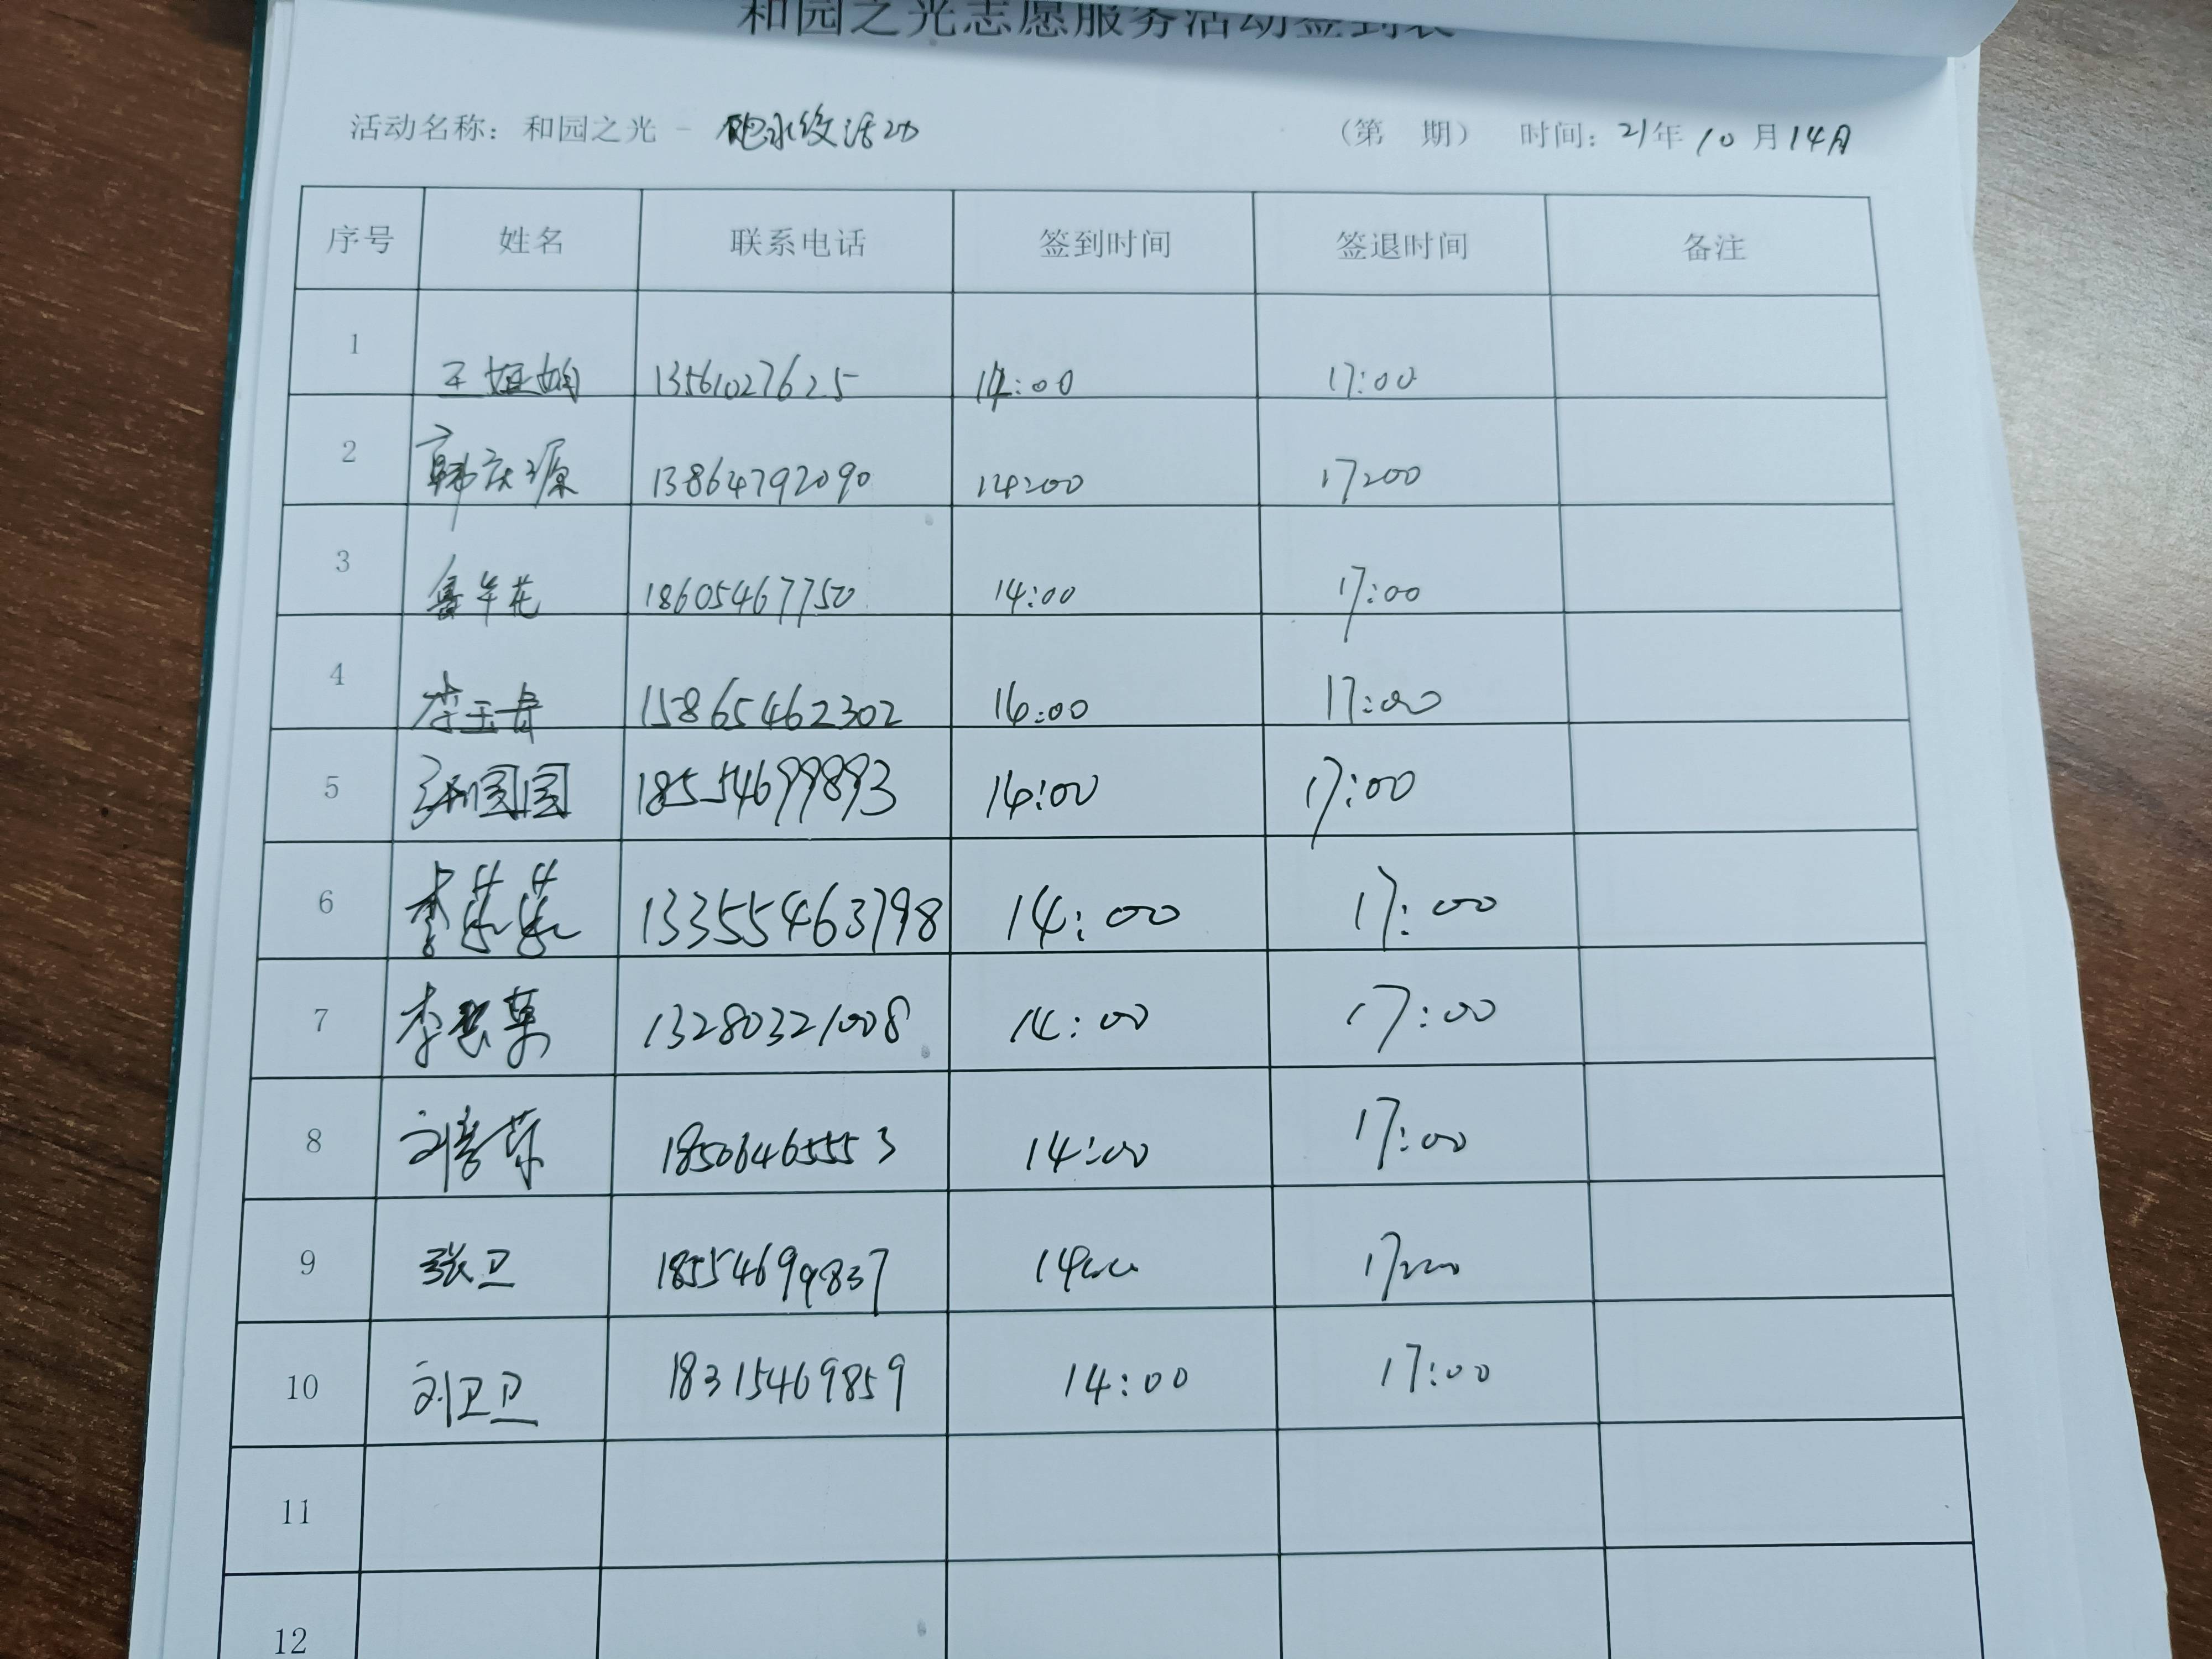 和园之光志愿服务活动签到表
活动名称：和园之光 - 水纹活动 （第 期） 时间：21年10月14日
序号 姓名 联系电话 签到时间 签退时间 备注
1 王姐娟 13561027625 14:00 17:00
2 韩庆源 13864792090 14:00 17:00
3 鲁年花 18605467750 14:00 17:00
4 李玉春 15865462302 14:00 17:00
5 孙圆圆 18554699893 14:00 17:00
6 李荣荣 13355463798 14:00 17:00
7 李 13280321008 14:00 17:00
8 刘 18506465553 14:00 17:00
9 张卫 18554699837 14:00 17:00
10 刘卫卫 18315469859 14:00 17:00
11
12